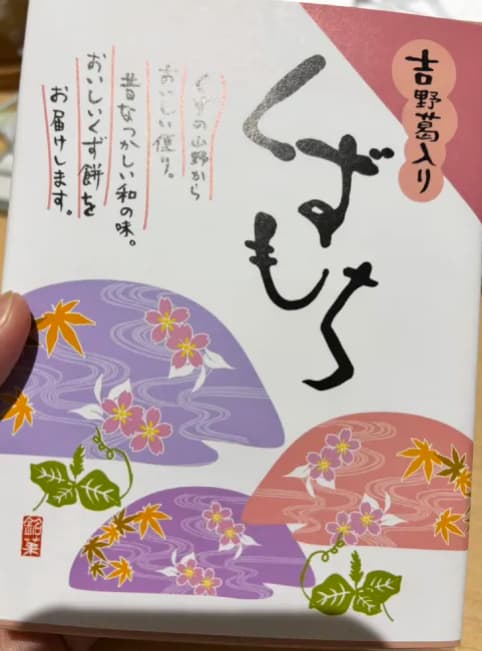 吉野葛入り
くずもち
くずの山野から
おいしい便り。
昔なつかしい和の味。
おいしいくず餅を
お届けします。
銘菓